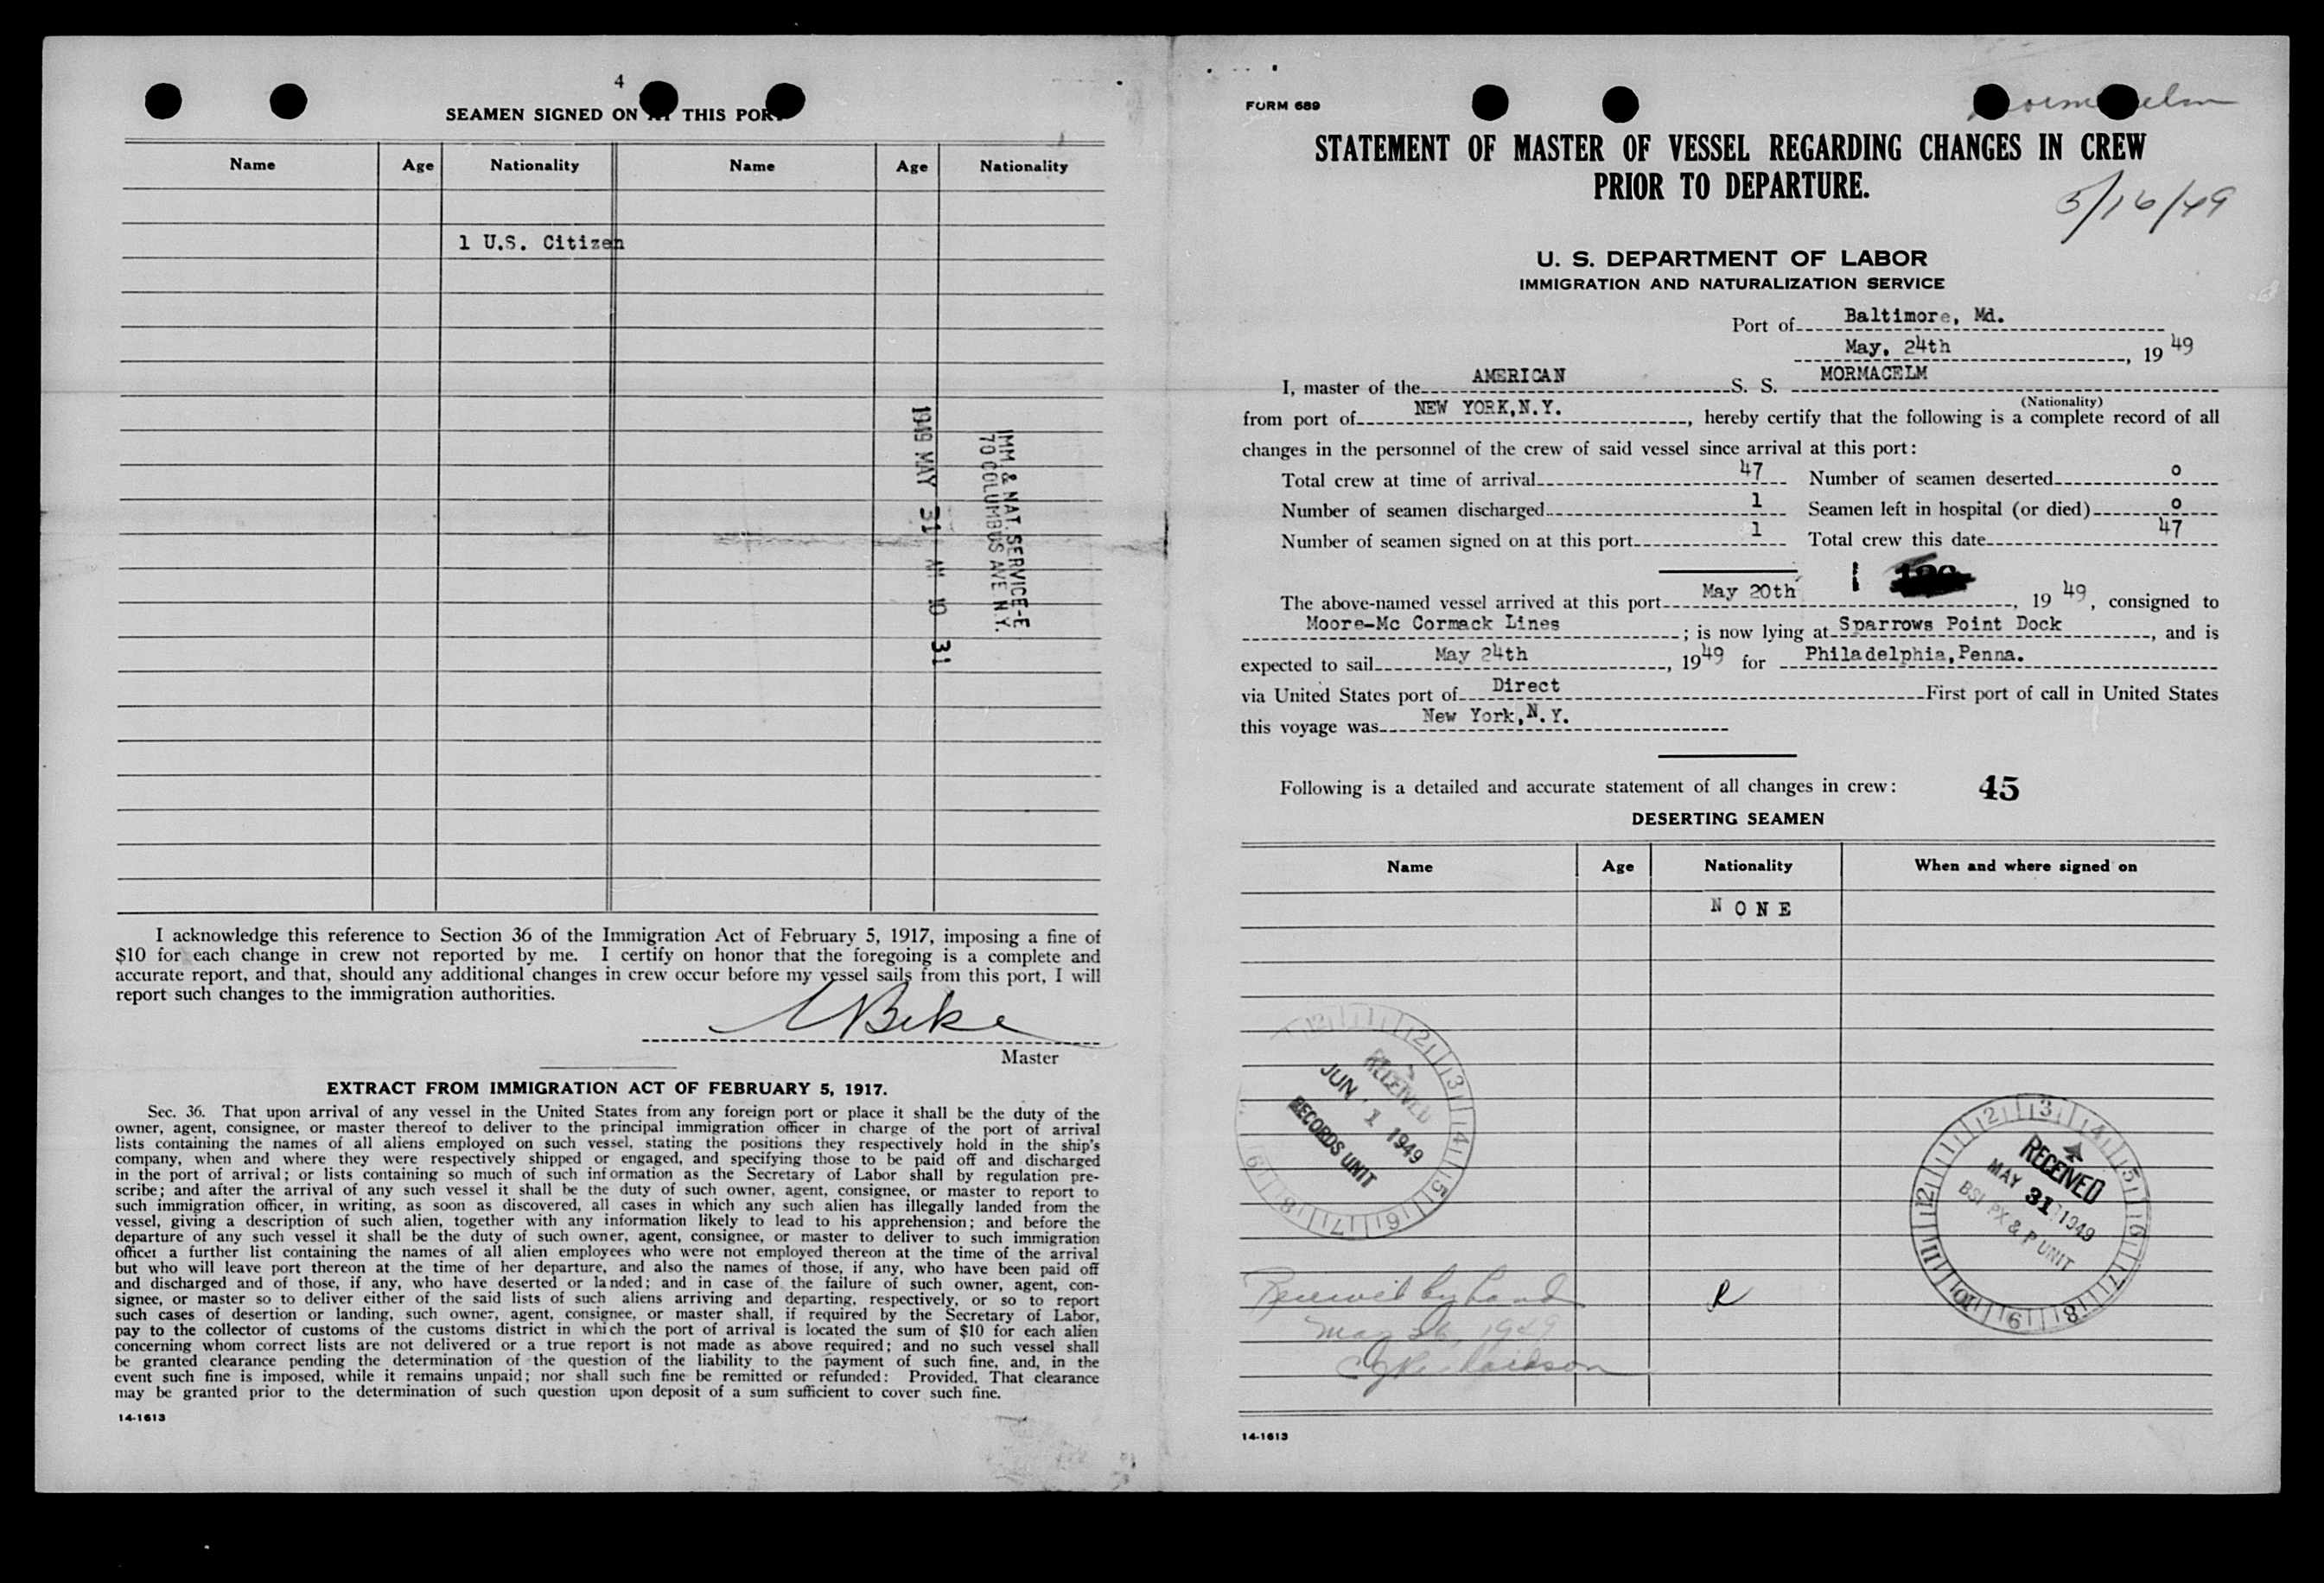 4
SEAMEN SIGNED ON AT THIS PORT
Name Age Nationality Name Age Nationality
1 U.S. Citizen
1949 MAY 31 AM 10 31
IMM & NAT. SERVICE-E
70 COLUMBUS AVE N.Y.
I acknowledge this reference to Section 36 of the Immigration Act of February 5, 1917, imposing a fine of
$10 for each change in crew not reported by me. I certify on honor that the foregoing is a complete and
accurate report, and that, should any additional changes in crew occur before my vessel sails from this port, I will
report such changes to the immigration authorities.
Master
EXTRACT FROM IMMIGRATION ACT OF FEBRUARY 5, 1917.
Sec. 36. That upon arrival of any vessel in the United States from any foreign port or place it shall be the duty of the
owner, agent, consignee, or master thereof to deliver to the principal immigration officer in charge of the port of arrival
lists containing the names of all aliens employed on such vessel, stating the positions they respectively hold in the ship's
company, when and where they were respectively shipped or engaged, and specifying those to be paid off and discharged
in the port of arrival; or lists containing so much of such information as the Secretary of Labor shall by regulation pre-
scribe; and after the arrival of any such vessel it shall be the duty of such owner, agent, consignee, or master to report to
such immigration officer, in writing, as soon as discovered, all cases in which any such alien has illegally landed from the
vessel, giving a description of such alien, together with any information likely to lead to his apprehension; and before the
departure of any such vessel it shall be the duty of such owner, agent, consignee, or master to deliver to such immigration
officer a further list containing the names of all alien employees who were not employed thereon at the time of the arrival
but who will leave port thereon at the time of her departure, and also the names of those, if any, who have been paid off
and discharged and of those, if any, who have deserted or landed; and in case of the failure of such owner, agent, con-
signee, or master so to deliver either of the said lists of such aliens arriving and departing, respectively, or so to report
such cases of desertion or landing, such owner, agent, consignee, or master shall, if required by the Secretary of Labor,
pay to the collector of customs of the customs district in which the port of arrival is located the sum of $10 for each alien
concerning whom correct lists are not delivered or a true report is not made as above required; and no such vessel shall
be granted clearance pending the determination of the question of the liability to the payment of such fine, and, in the
event such fine is imposed, while it remains unpaid; nor shall such fine be remitted or refunded: Provided, That clearance
may be granted prior to the determination of such question upon deposit of a sum sufficient to cover such fine.
14-1613
FORM 689
STATEMENT OF MASTER OF VESSEL REGARDING CHANGES IN CREW
PRIOR TO DEPARTURE.
5/16/49
U. S. DEPARTMENT OF LABOR
IMMIGRATION AND NATURALIZATION SERVICE
Port of Baltimore, Md.
May, 24th, 19 49
I, master of the AMERICAN S. S. MORMACELM
(Nationality)
from port of NEW YORK,N.Y., hereby certify that the following is a complete record of all
changes in the personnel of the crew of said vessel since arrival at this port:
Total crew at time of arrival 47 Number of seamen deserted 0
Number of seamen discharged 1 Seamen left in hospital (or died) 0
Number of seamen signed on at this port 1 Total crew this date 47
The above-named vessel arrived at this port May 20th, 19 49, consigned to
Moore-Mc Cormack Lines; is now lying at Sparrows Point Dock, and is
expected to sail May 24th, 19 49 for Philadelphia,Penna.
via United States port of Direct First port of call in United States
this voyage was New York,N.Y.
Following is a detailed and accurate statement of all changes in crew: 45
DESERTING SEAMEN
Name Age Nationality When and where signed on
N O N E
RECEIVED
JUN 1 1949
RECORDS UNIT
RECEIVED
MAY 31 1949
BSI PX & P UNIT
by hand
May 26, 1949
14-1613